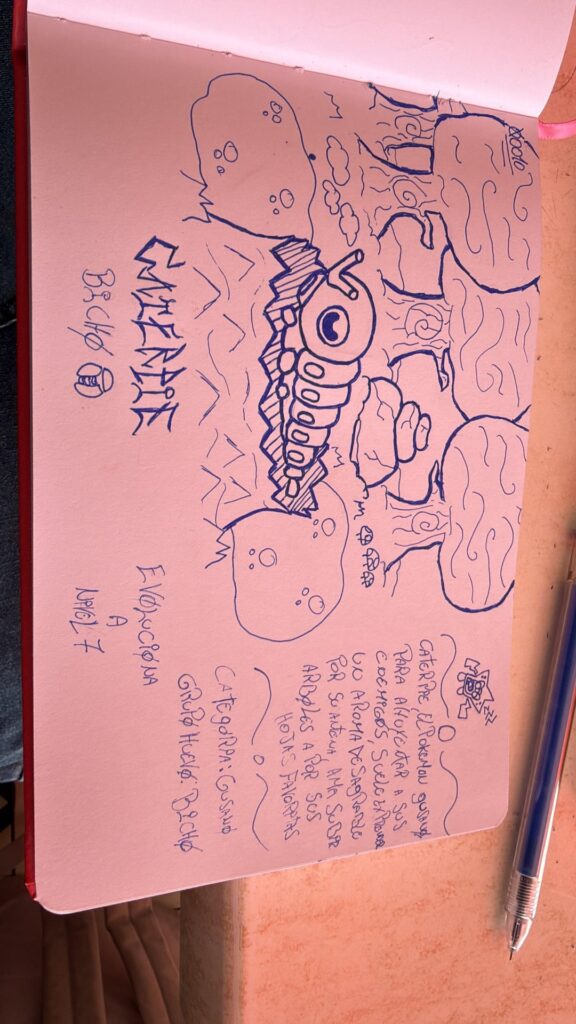 #0010
CATERPIE, EL POKEMON GUSANO
PARA AHUYENTAR A SUS
ENEMIGOS, SUELE
UN AROMA
POR SU ANTENA, AMA SUBIR
ARBOLES A POR SUS
HOJAS FAVORITAS
CATEGORIA: GUSANO
GRUPO HUEVO: BICHO
CATERPIE
BICHO
EVOLUCIONA
A
NIVEL 7